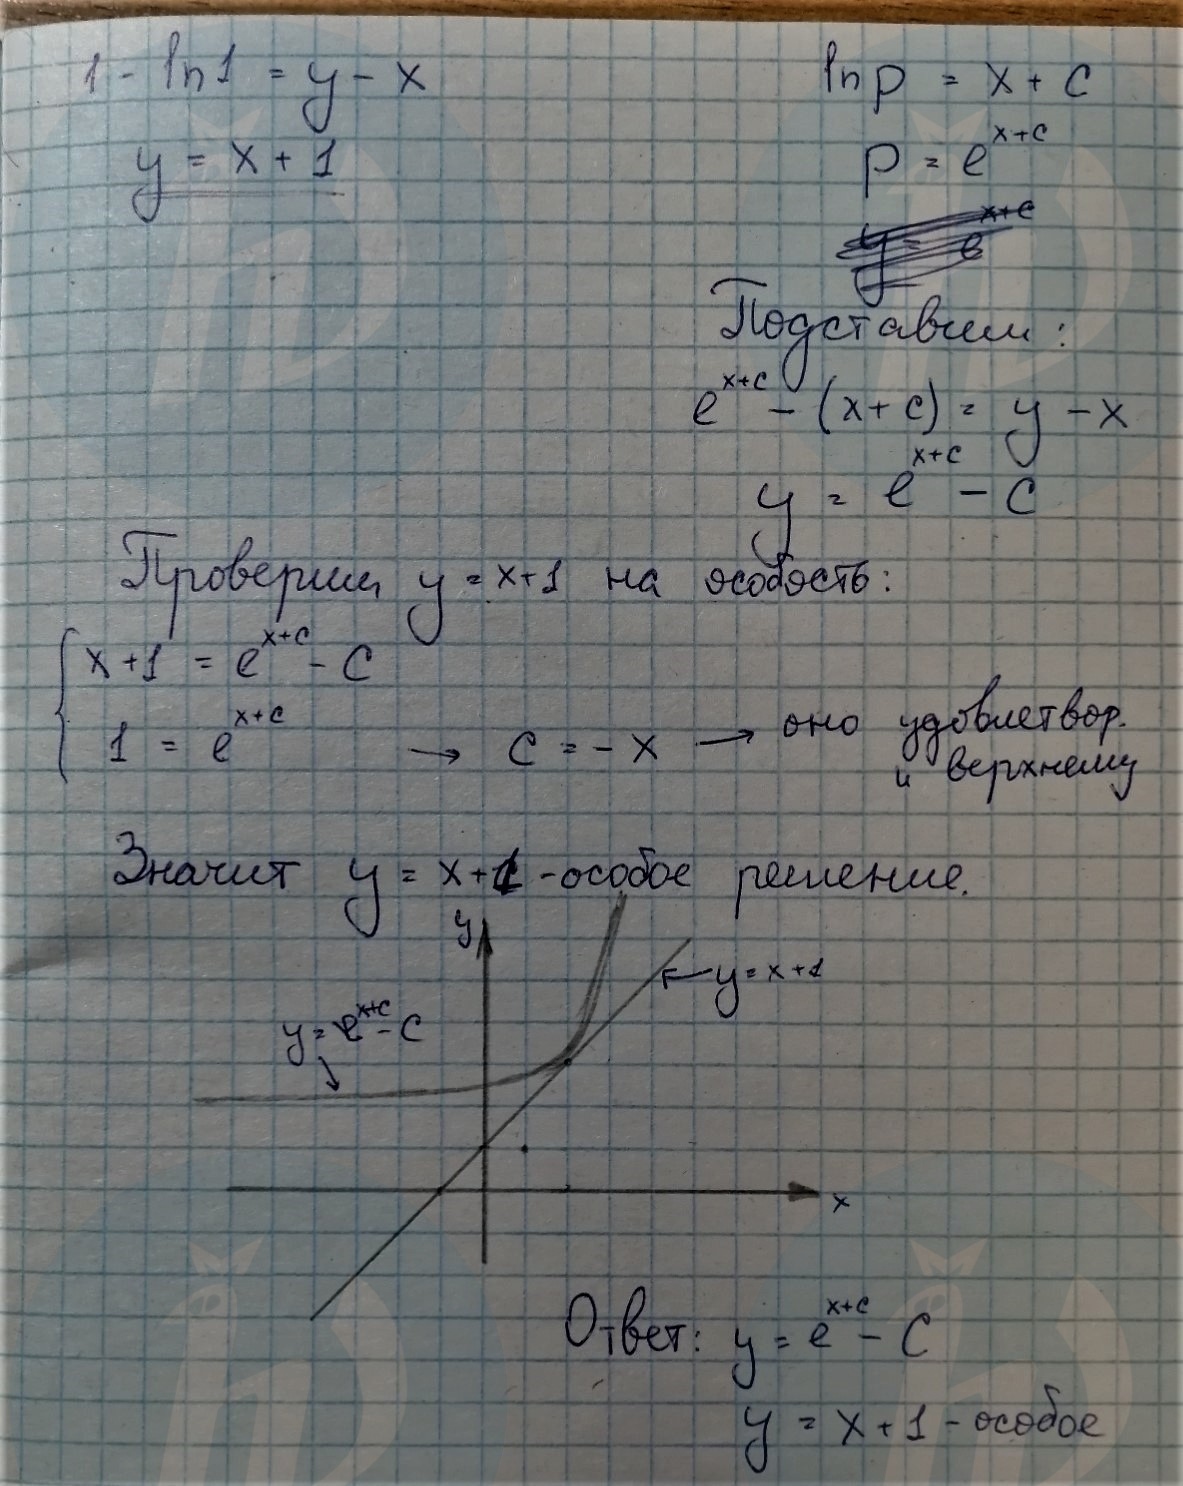 1 - ln1 = y - x
y = x + 1
ln p = x + c
p = e^{x+c}
Подставим:
e^{x+c} - (x+c) = y - x
y = e^{x+c} - C
Проверим y = x+1 на особость:
x+1 = e^{x+c} - C
1 = e^{x+c} → C = -x → оно удовлетвор.
и верхнему
Значит y = x+1 - особое решение.
y
y = x+1
y = e^{x+c} - C
x
Ответ: y = e^{x+c} - C
y = x + 1 - особое